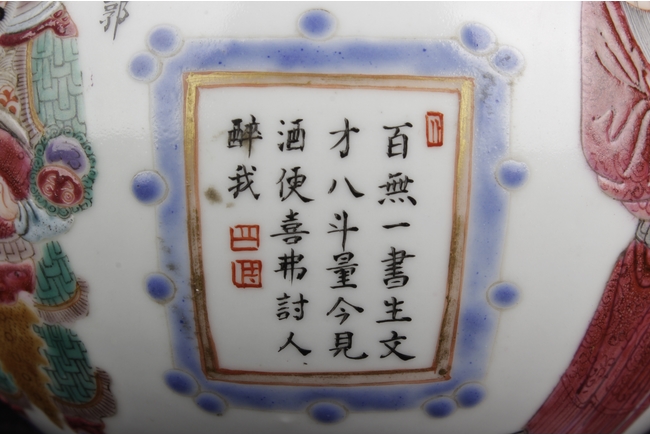 郭
百無一書生文
才八斗量今見
酒便喜弗討人
醉我